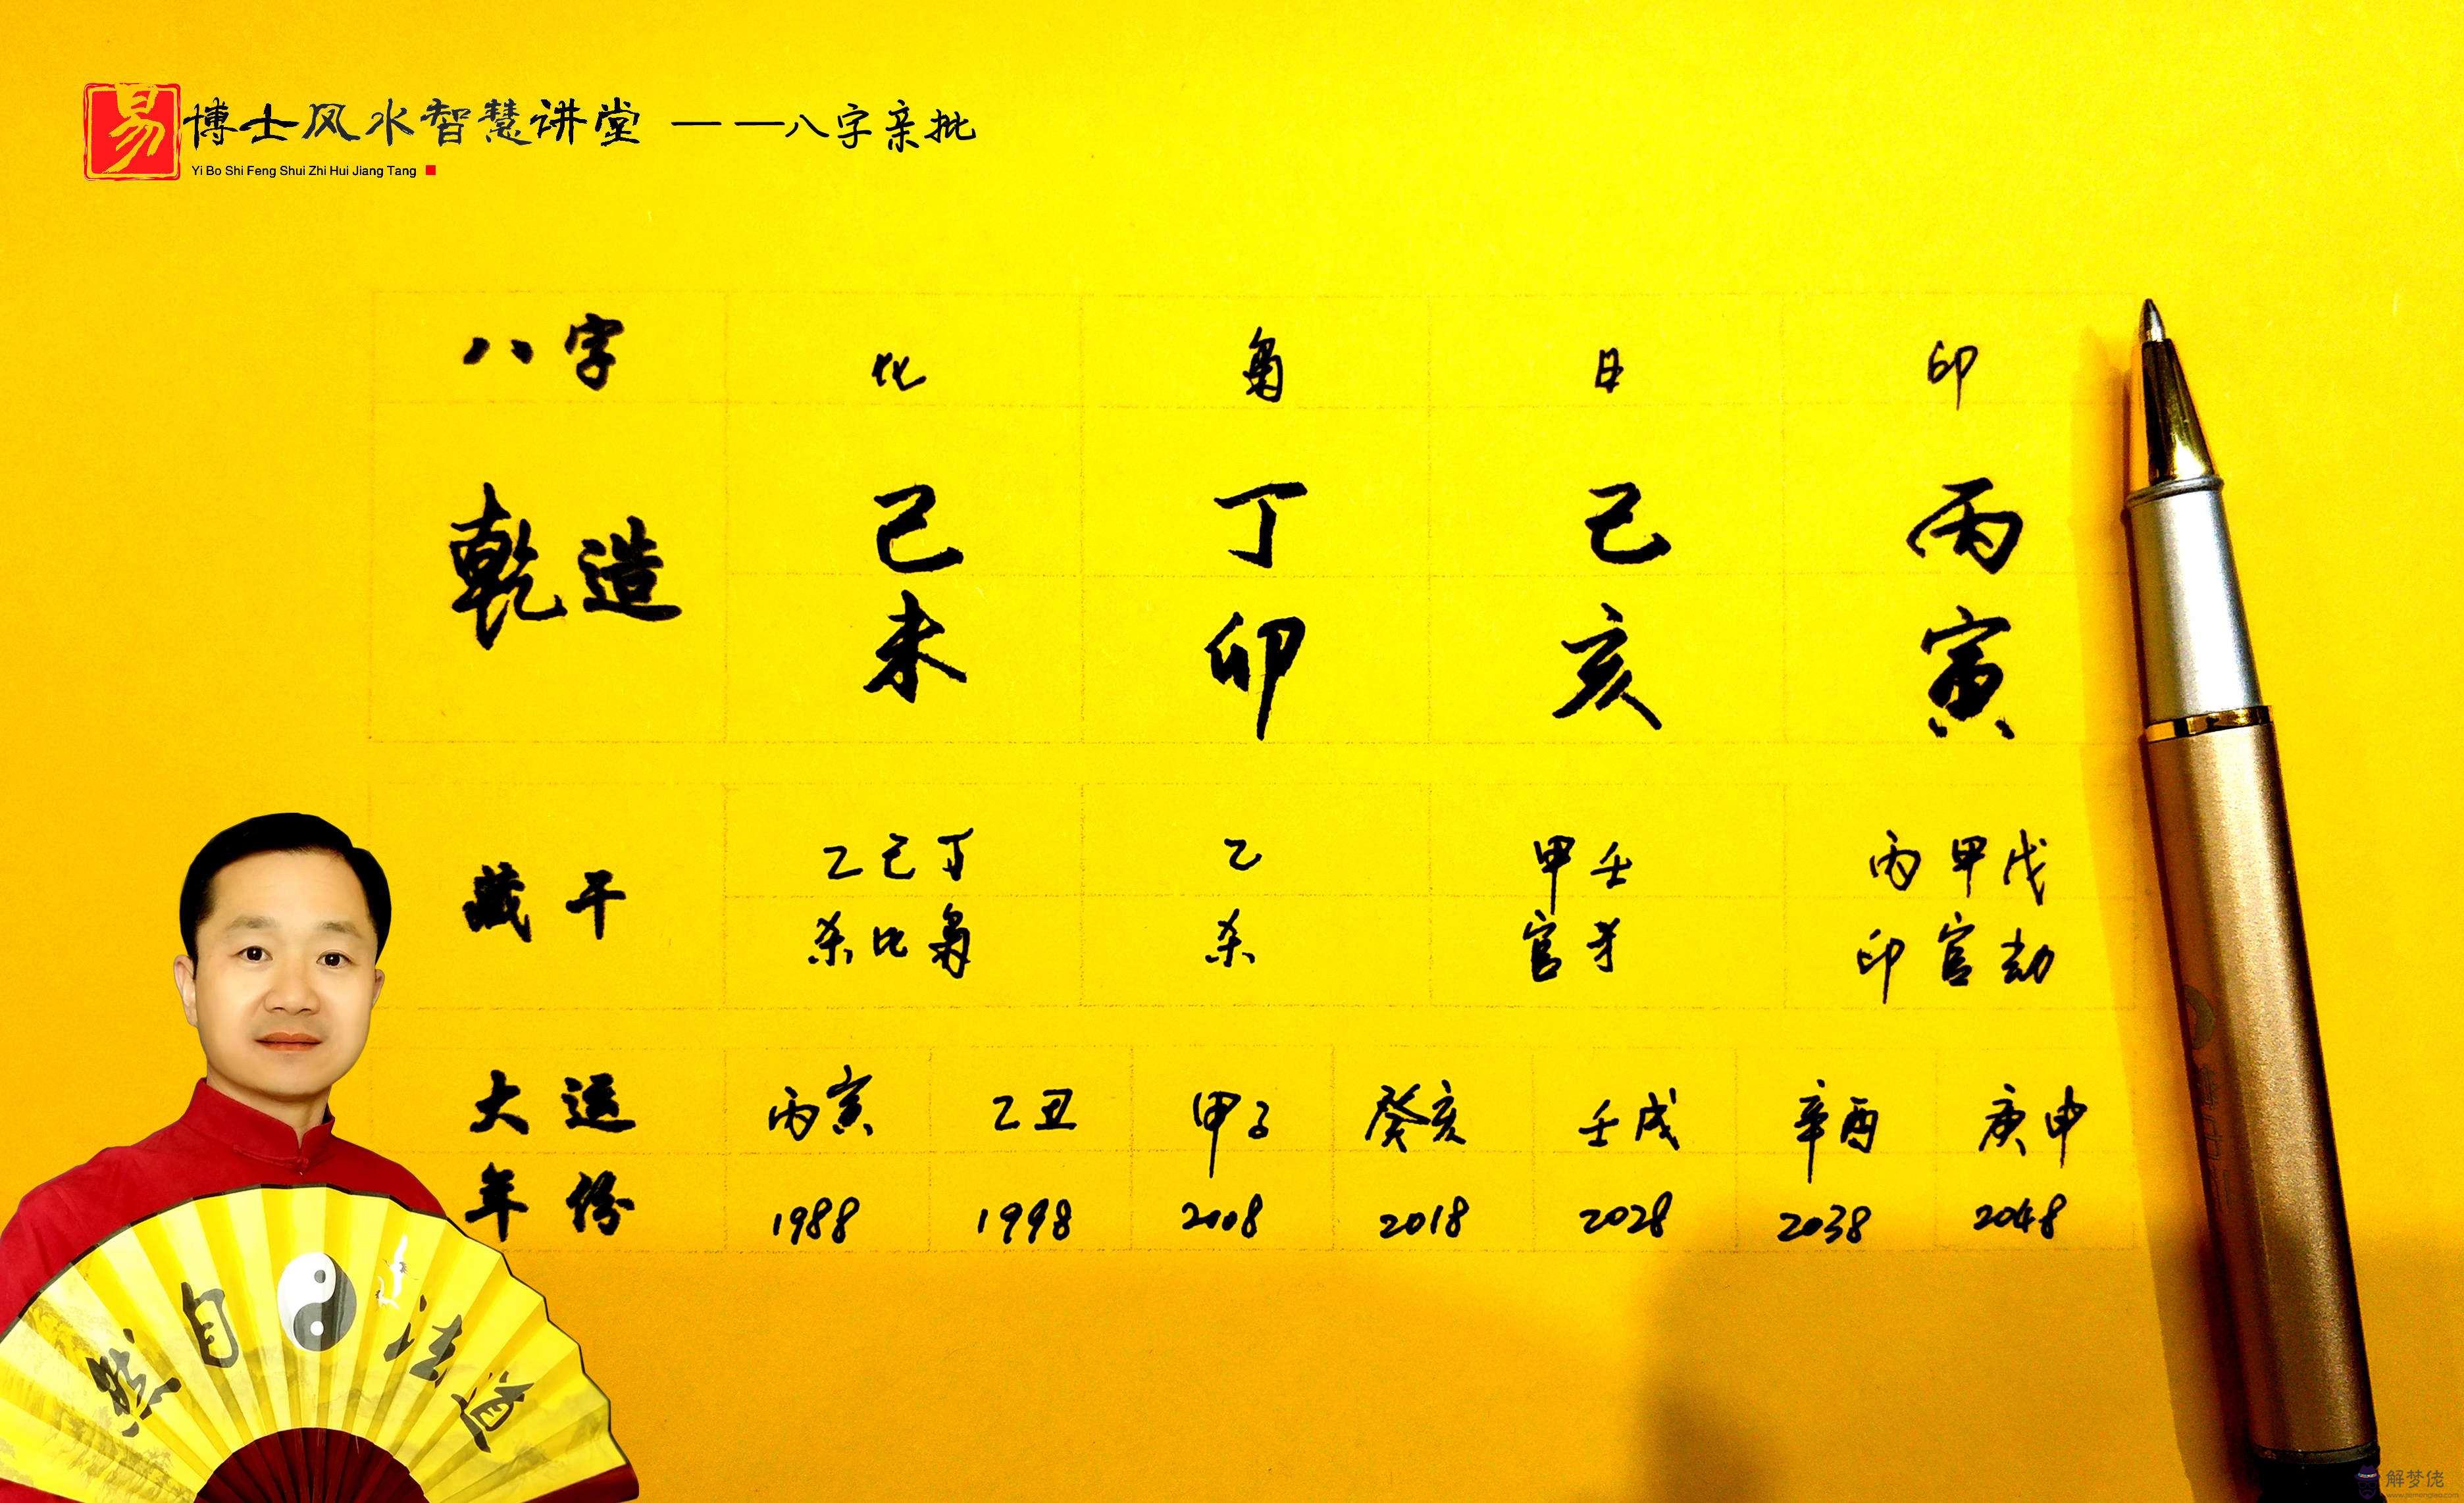 易博士风水智慧讲堂 ——八字亲批
Yi Bo Shi Feng Shui Zhi Hui Jiang Tang
八字 比 枭 日 印
乾造 己 丁 己 丙
未 卯 亥 寅
藏干 乙己丁 乙 甲壬 丙甲戊
杀比枭 杀 官才 印官劫
大运 丙寅 乙丑 甲子 癸亥 壬戌 辛酉 庚申
年份 1988 1998 2008 2018 2028 2038 2048
然自法道
解梦佬